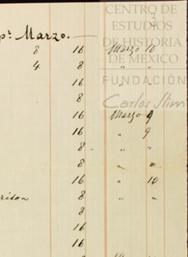 CENTRO DE
ESTUDIOS
DE HISTORIA
DE MEXICO
FUNDACIÓN
Carlos Slim
pr. Marzo.
8 16 Marzo 10
4 8 " "
16 " "
8 " "
16 Marzo 9
16 " 9
8 " "
8 " "
16 " 10
8 "
8 "
16 "
16 "